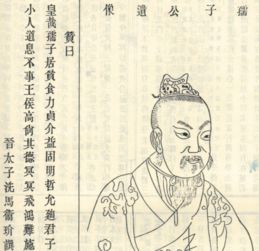 孺子公遺像
贊曰
皇哉孺子居貧食力貞介益固明哲允廸君子
小人道息不事王侯高尚其德冥冥飛鴻難施
晉太子洗馬衞玠譔